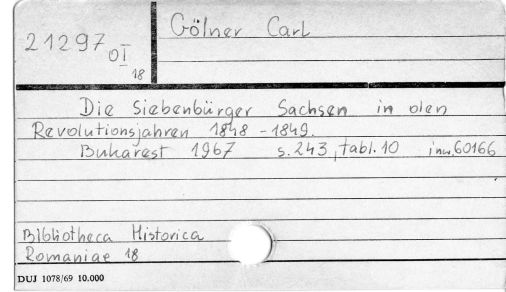 21297 OI 18
Gölner Carl
Die Siebenbürger Sachsen in den
Revolutionsjahren 1848-1849.
Bukarest 1967 s. 243, tabl. 10 inw. 60166
Bibliotheca Historica
Romaniae 18
DUJ 1078/69 10.000